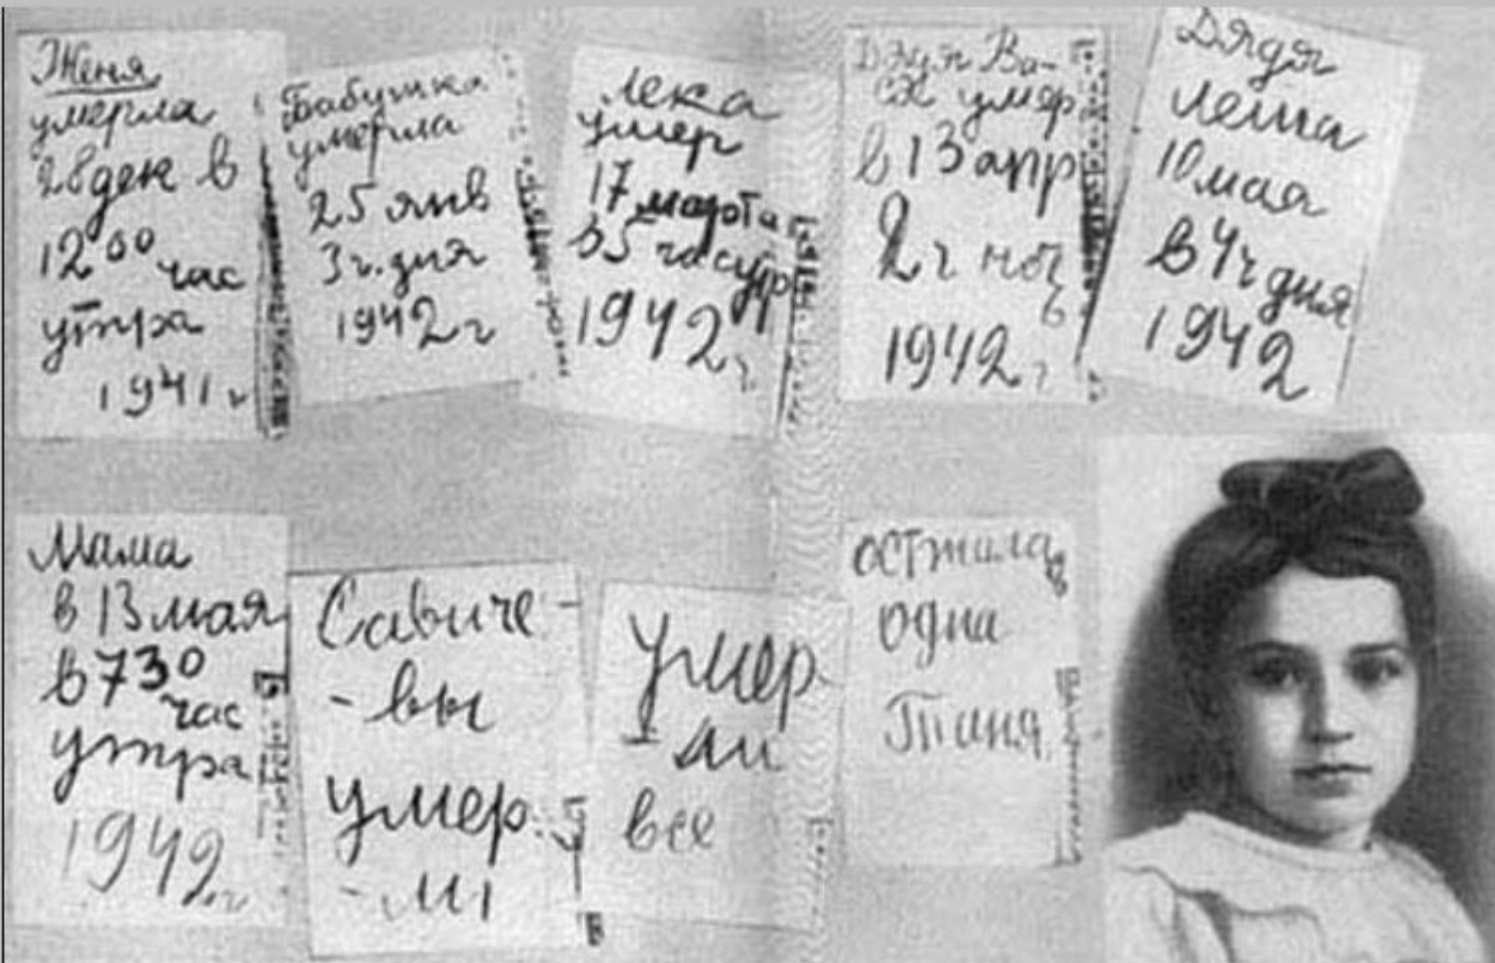 Женя
умерла
28 дек в
12⁰⁰ час
утра
1941 г
Бабушка
умерла
25 янв
3 ч. дня
1942 г
Лека
умер
17 марта
в 5 час утр
1942 г.
Дядя Ва-
ся умер
в 13 апр
2 ч ноч
1942 г
Дядя
Леша
10 мая
в 4 ч дня
1942
Мама
в 13 мая
в 7 30
час
утра
1942 г
Савиче-
-вы
умер
-ли
Умер
-ли
все
осталась
одна
Таня